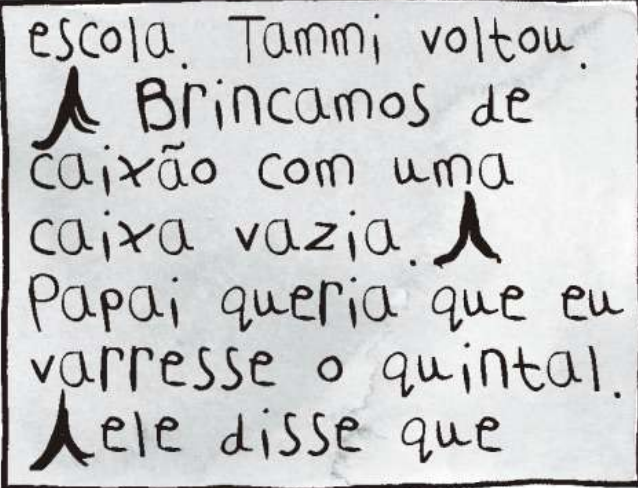 escola. Tammi voltou.
Brincamos de
caixão com uma
caixa vazia.
Papai queria que eu
varresse o quintal.
ele disse que